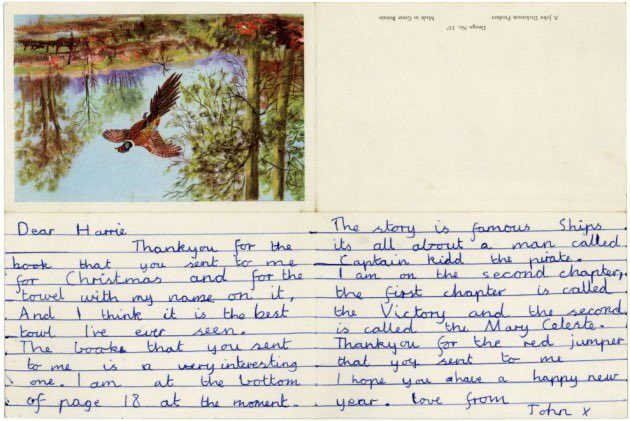 A John Dickinson Product
Made in Great Britain
Design No.
Dear Harrie
Thankyou for the
book that you sent to me
for Christmas and for the
towel with my name on it,
And I think it is the best
towl I've ever seen.
The book that you sent
to me is a very interesting
one. I am at the bottom
of page 18 at the moment.
The story is famous Ships
its all about a man called
Captain kidd the pirate.
I am on the second chapter,
the first chapter is called
the Victory and the second
is called the Mary Celeste.
Thankyou for the red jumper
that yoy sent to me
I hope you ahave a happy new
year. love from
John x